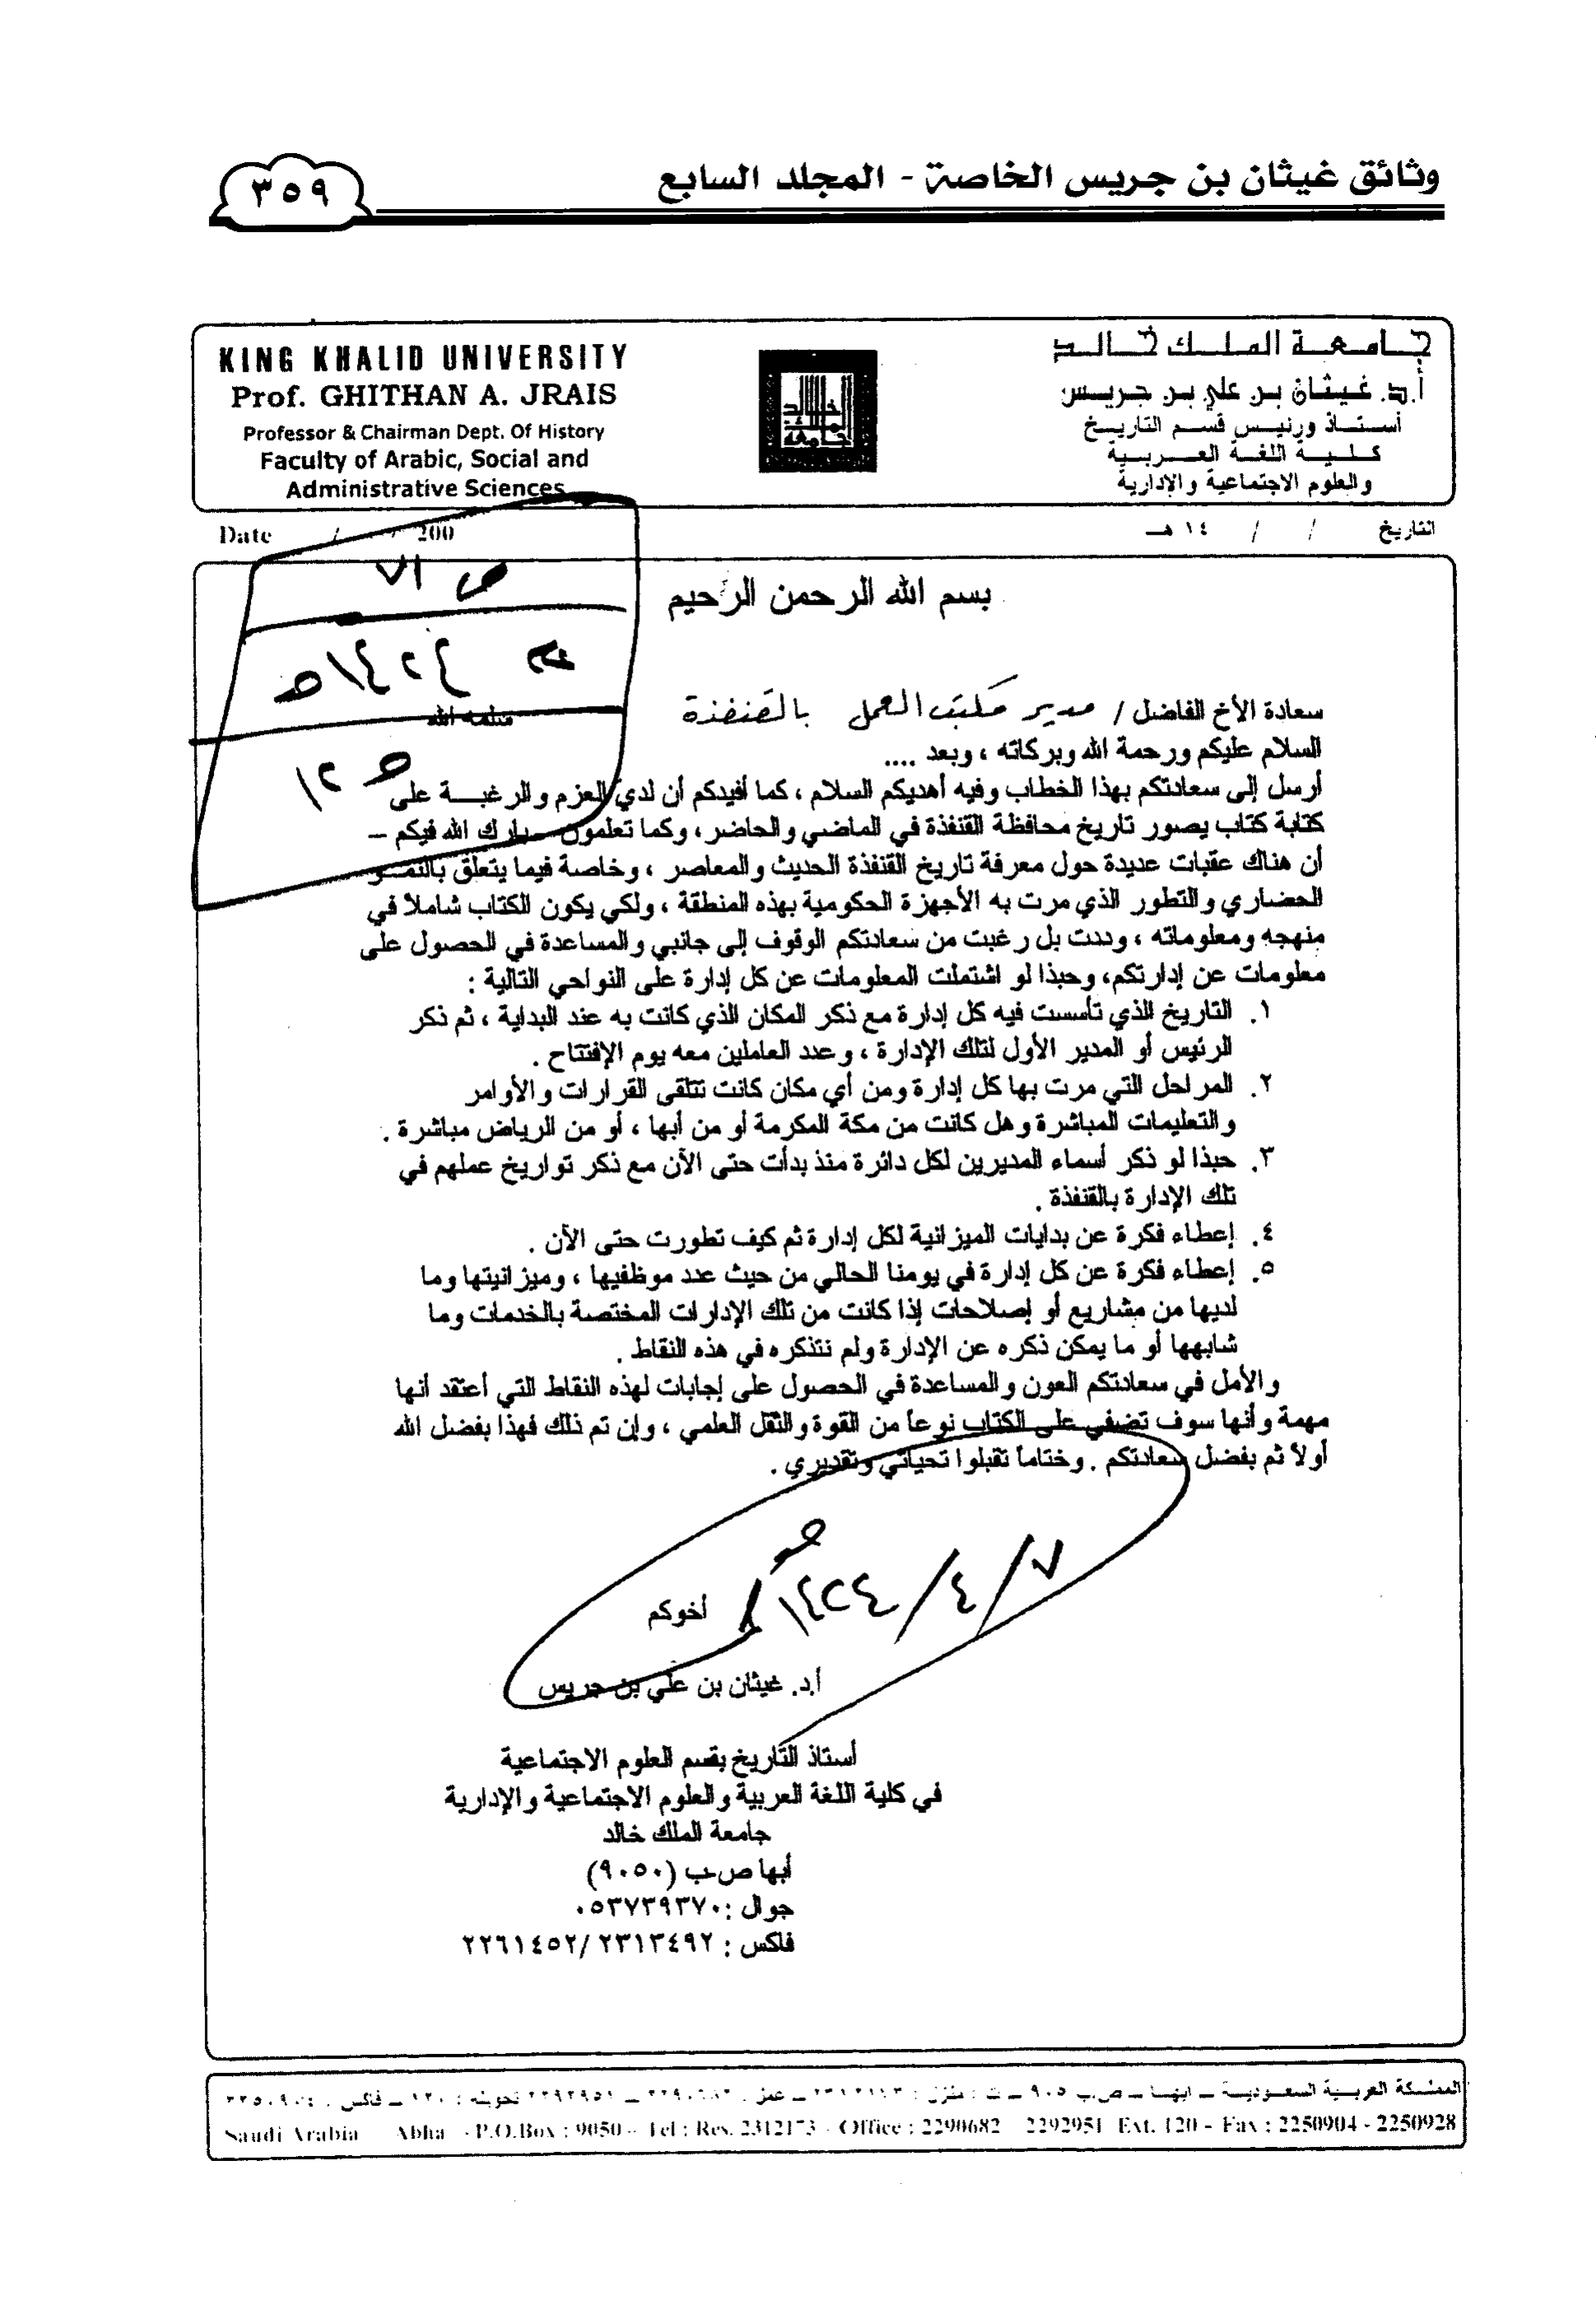 وثائق غيثان بن جريس الخاصة - المجلد السابع
٣٥٩
KING KHALID UNIVERSITY
Prof. GHITHAN A. JRAIS
Professor & Chairman Dept. Of History
Faculty of Arabic, Social and
Administrative Sciences
جامعة الملك خالد
أ.د. غيثان بن علي بن جريس
أستاذ ورئيس قسم التاريخ
كلية اللغة العربية
والعلوم الاجتماعية والإدارية
Date / / 200
التاريخ / / ١٤ هـ
ص ٧١
١٤٢٤هـ
بسم الله الرحمن الرحيم
سعادة الأخ الفاضل / مدير مكتب العمل بالقنفذة سلمه الله
السلام عليكم ورحمة الله وبركاته ، وبعد ....
أرسل إلى سعادتكم بهذا الخطاب وفيه أهديكم السلام ، كما أفيدكم أن لدي العزم والرغبة على
كتابة كتاب يصور تاريخ محافظة القنفذة في الماضي والحاضر ، وكما تعلمون – بارك الله فيكم –
أن هناك عقبات عديدة حول معرفة تاريخ القنفذة الحديث والمعاصر ، وخاصة فيما يتعلق بالنمو
الحضاري والتطور الذي مرت به الأجهزة الحكومية بهذه المنطقة ، ولكي يكون الكتاب شاملاً في
منهجه ومعلوماته ، وددت بل رغبت من سعادتكم الوقوف إلى جانبي والمساعدة في الحصول على
معلومات عن إدارتكم، وحبذا لو اشتملت المعلومات عن كل إدارة على النواحي التالية :
١. التاريخ الذي تأسست فيه كل إدارة مع ذكر المكان الذي كانت به عند البداية ، ثم ذكر
الرئيس أو المدير الأول لتلك الإدارة ، وعدد العاملين معه يوم الإفتتاح .
٢. المراحل التي مرت بها كل إدارة ومن أي مكان كانت تتلقى القرارات والأوامر
والتعليمات المباشرة وهل كانت من مكة المكرمة أو من أبها ، أو من الرياض مباشرة .
٣. حبذا لو ذكر أسماء المديرين لكل دائرة منذ بدأت حتى الآن مع ذكر تواريخ عملهم في
تلك الإدارة بالقنفذة .
٤. إعطاء فكرة عن بدايات الميزانية لكل إدارة ثم كيف تطورت حتى الآن .
٥. إعطاء فكرة عن كل إدارة في يومنا الحالي من حيث عدد موظفيها ، وميزانيتها وما
لديها من مشاريع أو إصلاحات إذا كانت من تلك الإدارات المختصة بالخدمات وما
شابهها أو ما يمكن ذكره عن الإدارة ولم نتذكره في هذه النقاط .
والأمل في سعادتكم العون والمساعدة في الحصول على إجابات لهذه النقاط التي أعتقد أنها
مهمة وأنها سوف تضفي على الكتاب نوعاً من القوة والثقل العلمي ، وإن تم ذلك فهذا بفضل الله
أولاً ثم بفضل سعادتكم . وختاماً تقبلوا تحياتي وتقديري .
٧/٤/١٤٢٤هـ
أخوكم
أ.د. غيثان بن علي بن جريس
أستاذ التاريخ بقسم العلوم الاجتماعية
في كلية اللغة العربية والعلوم الاجتماعية والإدارية
جامعة الملك خالد
أبها ص.ب (٩٠٥٠)
جوال : ٠٥٣٧٣٩٣٧٠
فاكس : ٢٣١٣٤٩٢ /٢٢٦١٤٥٢
المملكة العربية السعودية ـ أبها ـ ص.ب ٩٠٥ ـ ت : منزل : ٢٣١٢١٧٣ ـ عمل : ٢٢٩٠٦٨٢ ـ ٢٢٩٢٩٥١ تحويلة : ١٢٠ ـ فاكس :
Saudi Arabia Abha - P.O.Box : 9050 - Tel : Res. 2312173 - Office : 2290682 2292951 Ext. 120 - Fax : 2250904 - 2250928